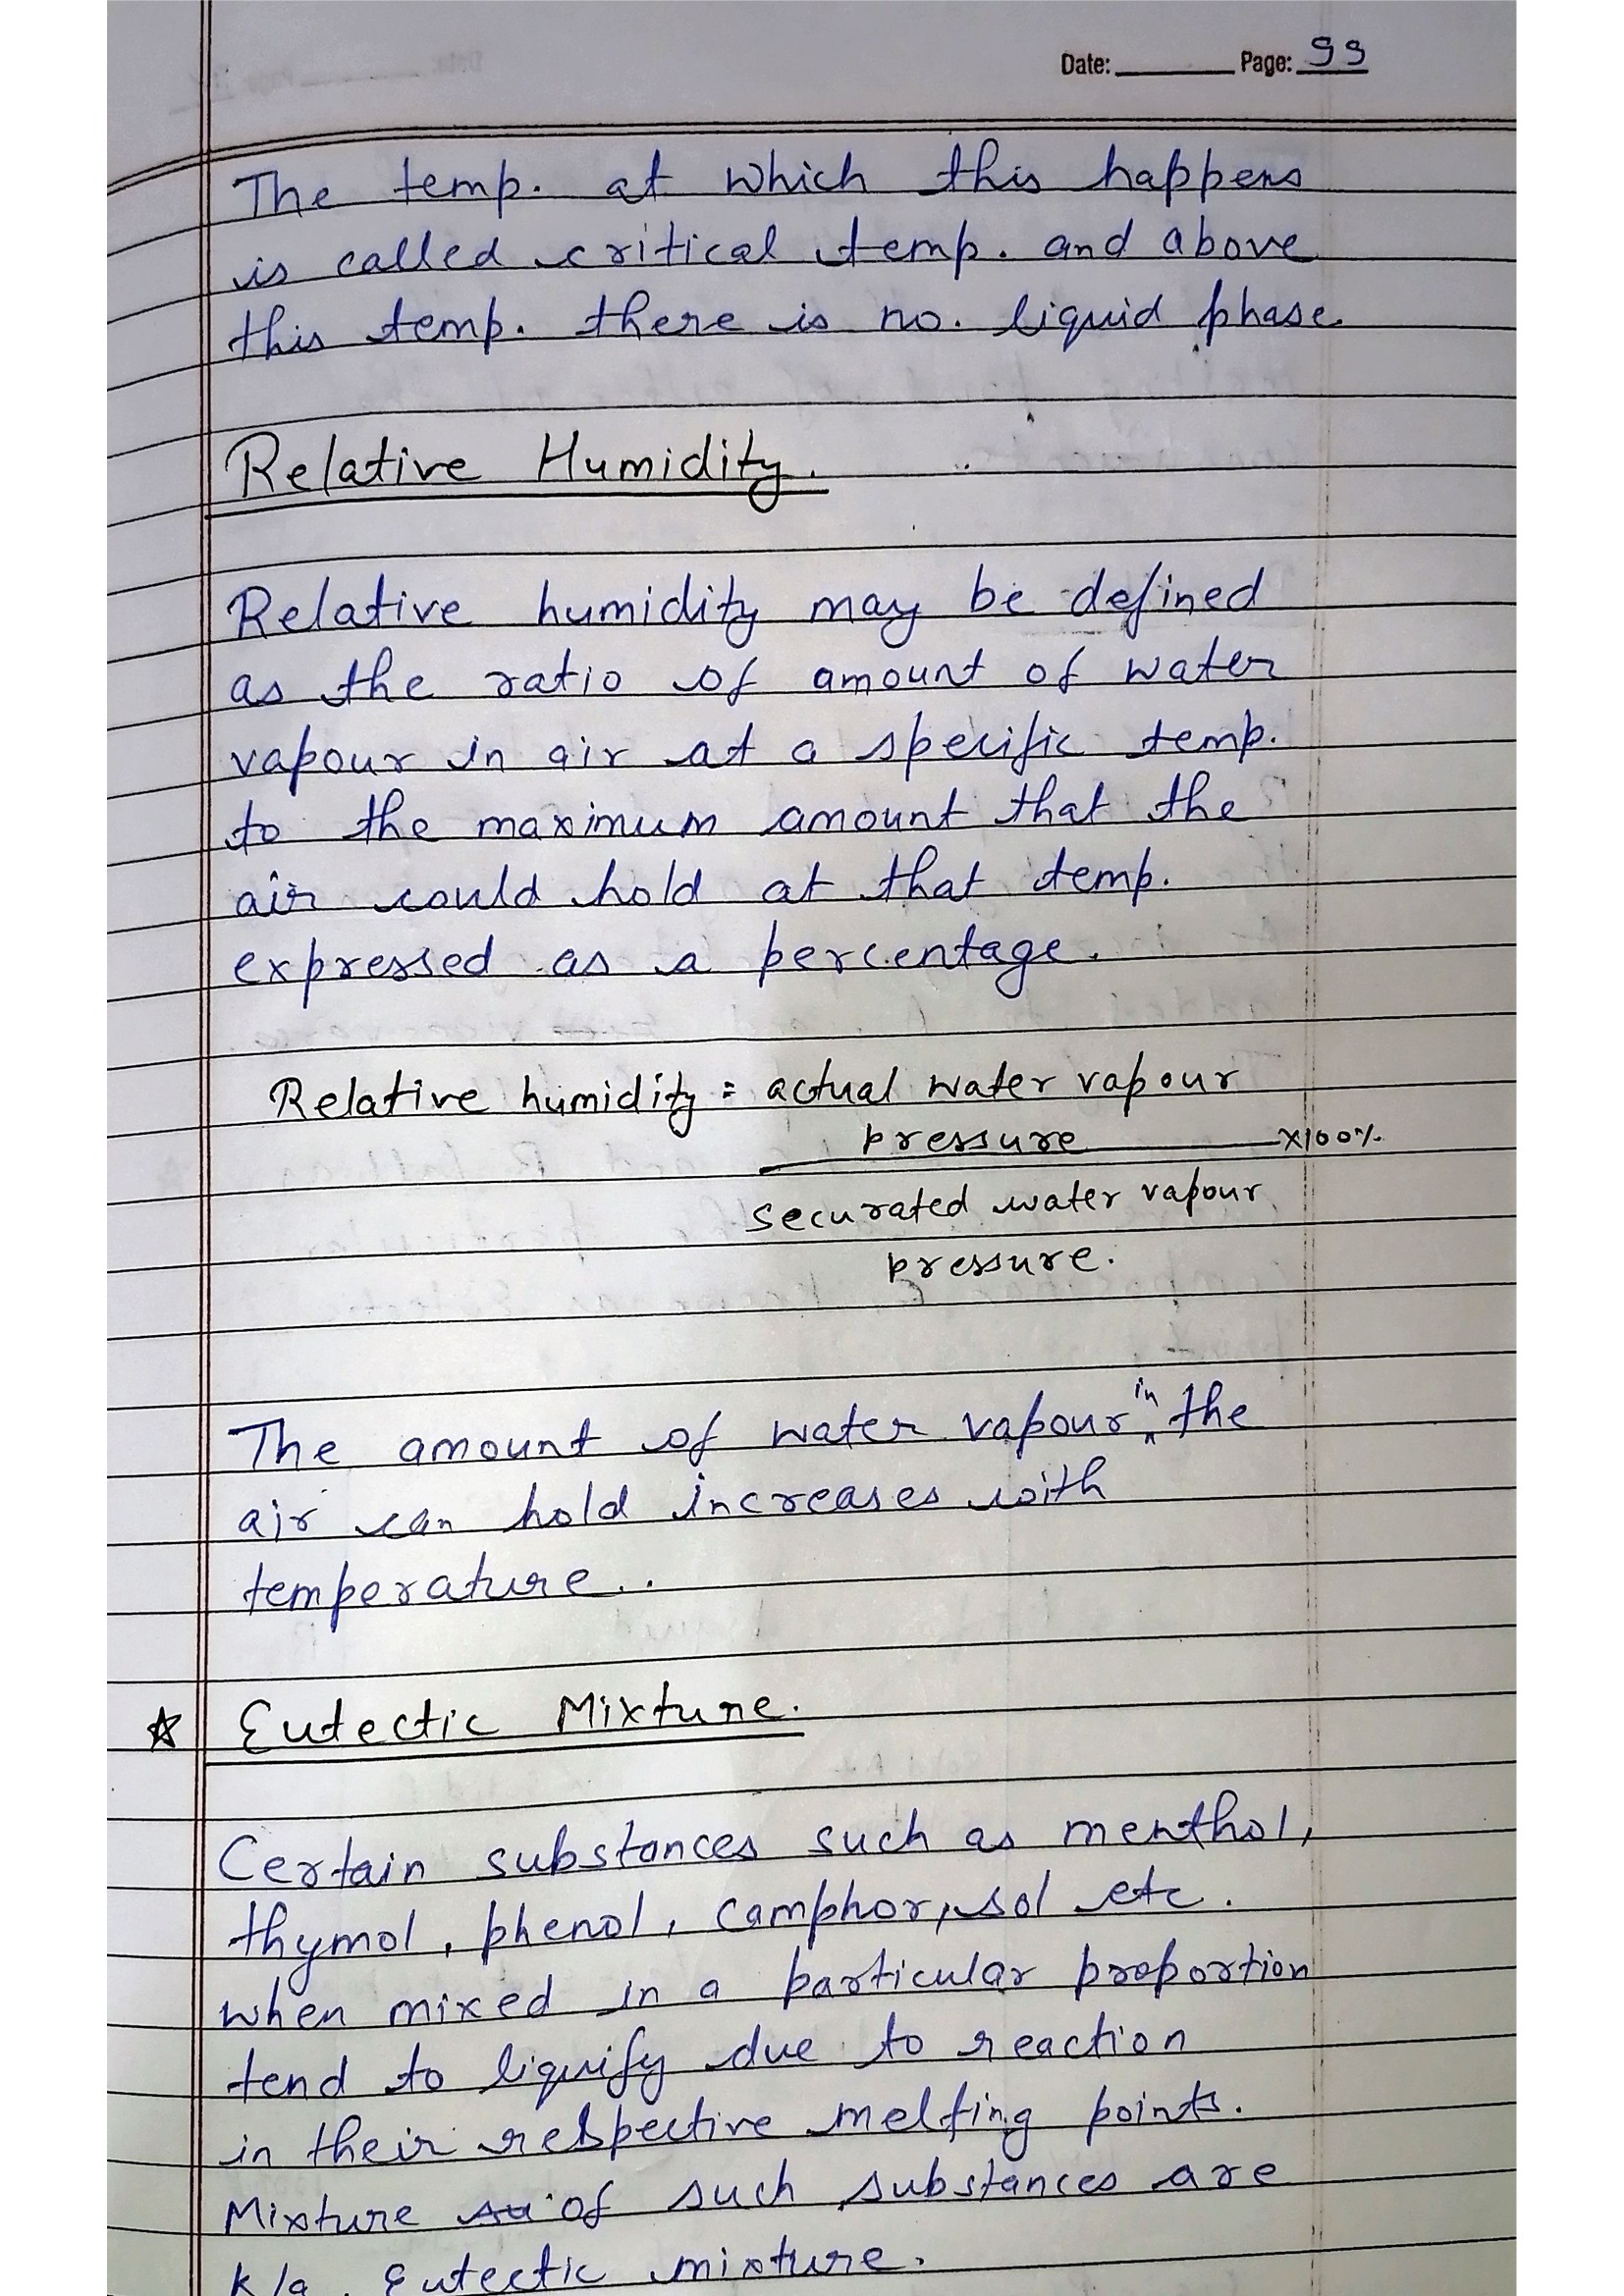 Date: Page: 99
The temp. at which this happens
is called critical temp. and above
this temp. there is no. liquid phase.
Relative Humidity.
Relative humidity may be defined
as the ratio of amount of water
vapour in air at a specific temp.
to the maximum amount that the
air could hold at that temp.
expressed as a percentage.
Relative humidity = actual water vapour
pressure x100%
securated water vapour
pressure.
The amount of water vapour in the
air can hold increases with
temperature..
☆ Eutectic Mixture.
Certain substances such as menthol,
thymol, phenol, camphor, sol etc.
when mixed in a particular proportion
tend to liquify due to reaction
in their respective melting points.
Mixture of such substances are
k/a. Eutectic mixture.